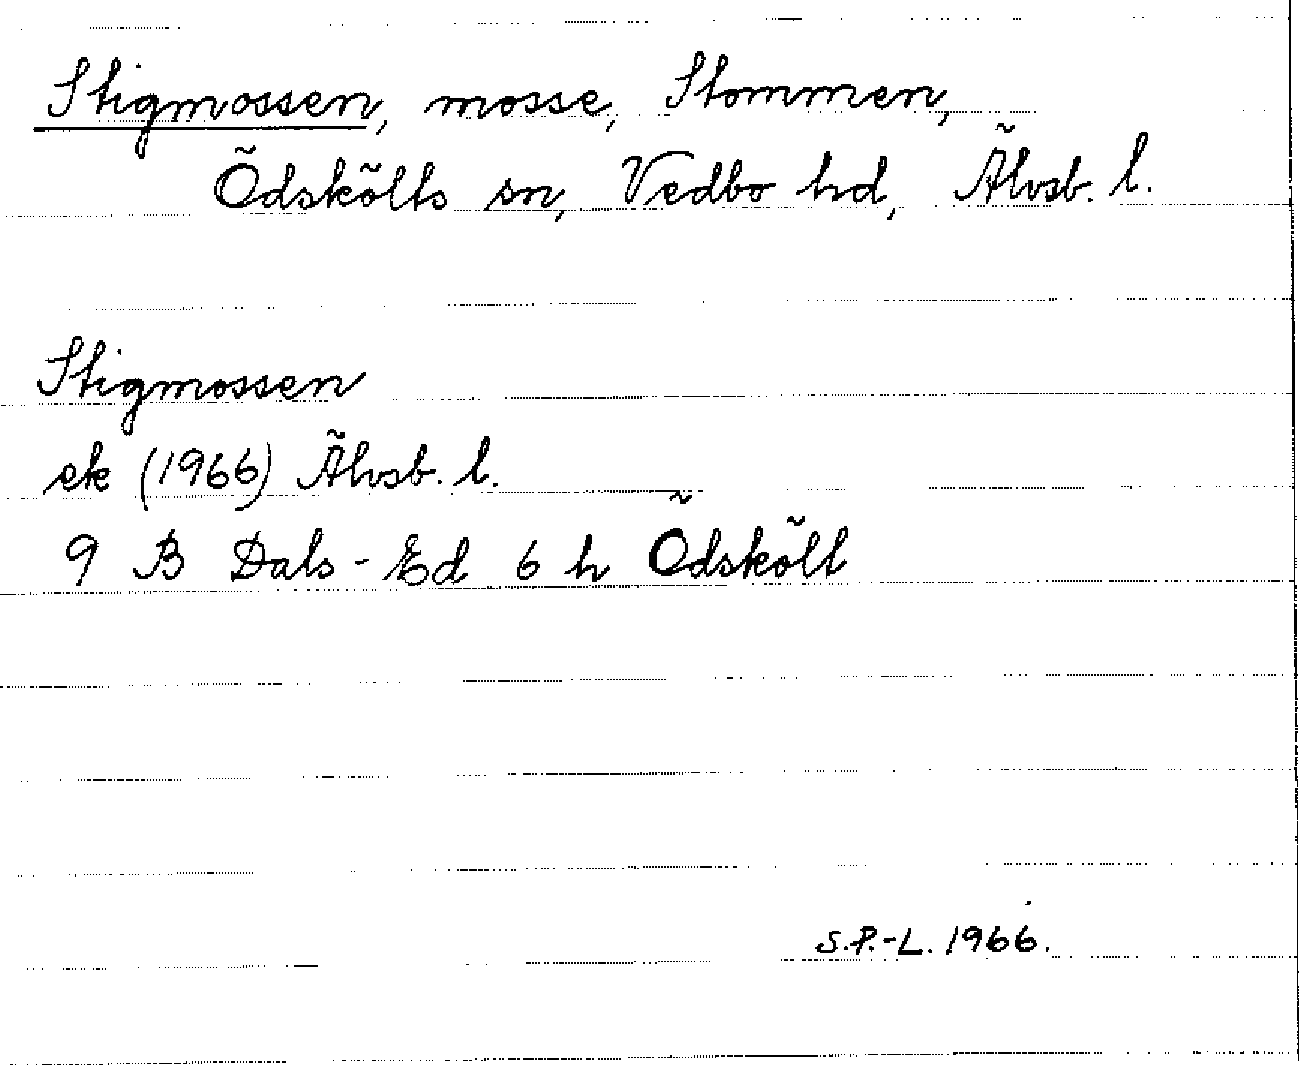 Stigmossen, mosse, Stommen,
Ödskölts sn, Vedbo hd, Älvsb. l.
Stigmossen
ek (1966) Älvsb. l.
9 B Dals-Ed 6 h Ödskölt
S.P.-L. 1966.